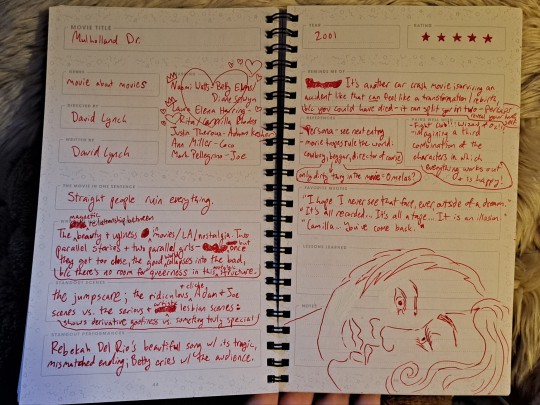 MOVIE TITLE
Mulholland Dr.
GENRE
movie about movies
DIRECTED BY
David Lynch
WRITTEN BY
David Lynch
Naomi Watts - Betty Elms/
Diane Selwyn
Laura Elena Harring -
Rita/Camilla Rhodes
Justin Theroux - Adam Kesher
Ann Miller - Coco
Mark Pellegrino - Joe
THE MOVIE IN ONE SENTENCE
Straight people ruin everything.
magnetic
relationship between
The beauty + ugliness movies/LA/nostalgia. Two
parallel stories + two parallel girls - but once
they got too close, the good world collapses into the bad,
b/c there's no room for queerness in this structure.
STANDOUT SCENES
the jumpscare; the ridiculous + cliche Adam + Joe
scenes vs. the serious + artistic lesbian scenes:
shows derivative goofiness vs. something truly special
STANDOUT PERFORMANCES
Rebekah Del Rio's beautiful song w/ its tragic,
mismatched ending; Betty cries w/ the audience.
YEAR
2001
RATING
★★★★★
REMINDS ME OF
It's another car crash movie; surviving an
accident like that can feel like a transformation/rebirth,
b/c you could have died - it can split you in two - or
REFERENCES
Persona - see next entry
movie tropes rule the world:
cowboy, beggar, director, of course
only dirty thing in the movie: Omelas?
PAIRS WELL WITH
- Fight Club
- imagining a third
combination of the
characters in which
everything works out
+ is happy!
FAVORITE QUOTES
"I hope I never see that face, ever, outside of a dream."
"It's all recorded... It's all a tape... It is an illusion."
"Camilla... You've come back."
LESSONS LEARNED
NOTES